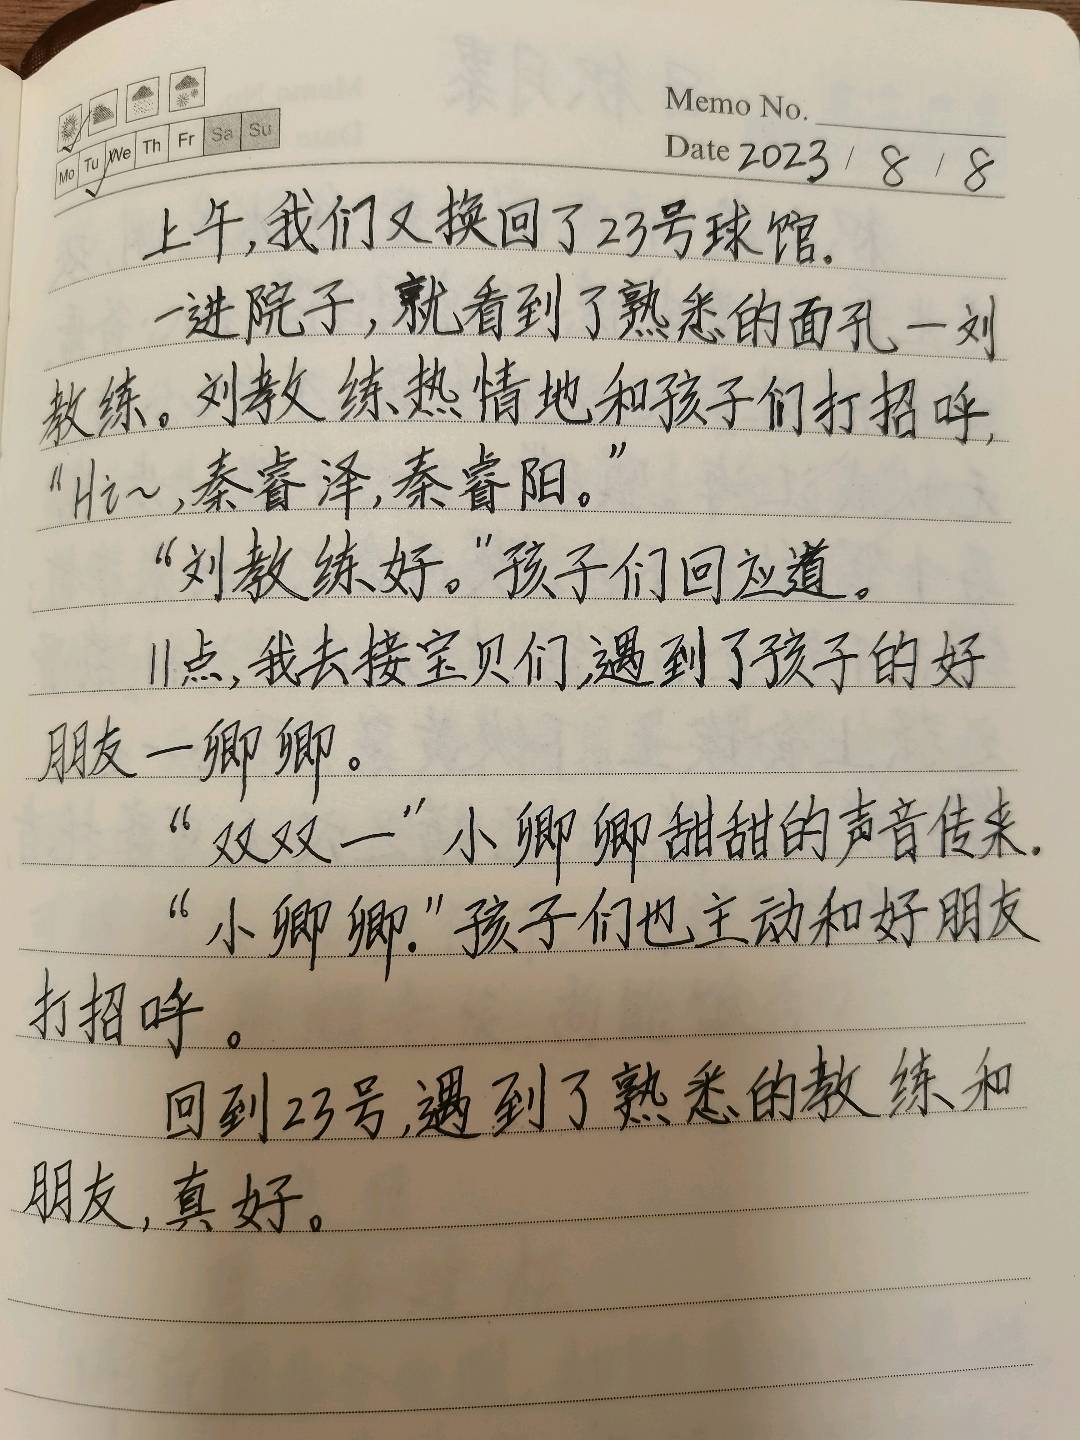 Memo No.
Mo Tu We Th Fr Sa Su
Date 2023 / 8 / 8
上午,我们又换回了23号球馆.
一进院子,就看到了熟悉的面孔一刘
教练。刘教练热情地和孩子们打招呼,
“Hi~,秦睿泽,秦睿阳。”
“刘教练好。”孩子们回应道。
11点,我去接宝贝们,遇到了孩子的好
朋友一卿卿。
“双双一”小卿卿甜甜的声音传来.
“小卿卿.”孩子们也主动和好朋友
打招呼。
回到23号,遇到了熟悉的教练和
朋友,真好。